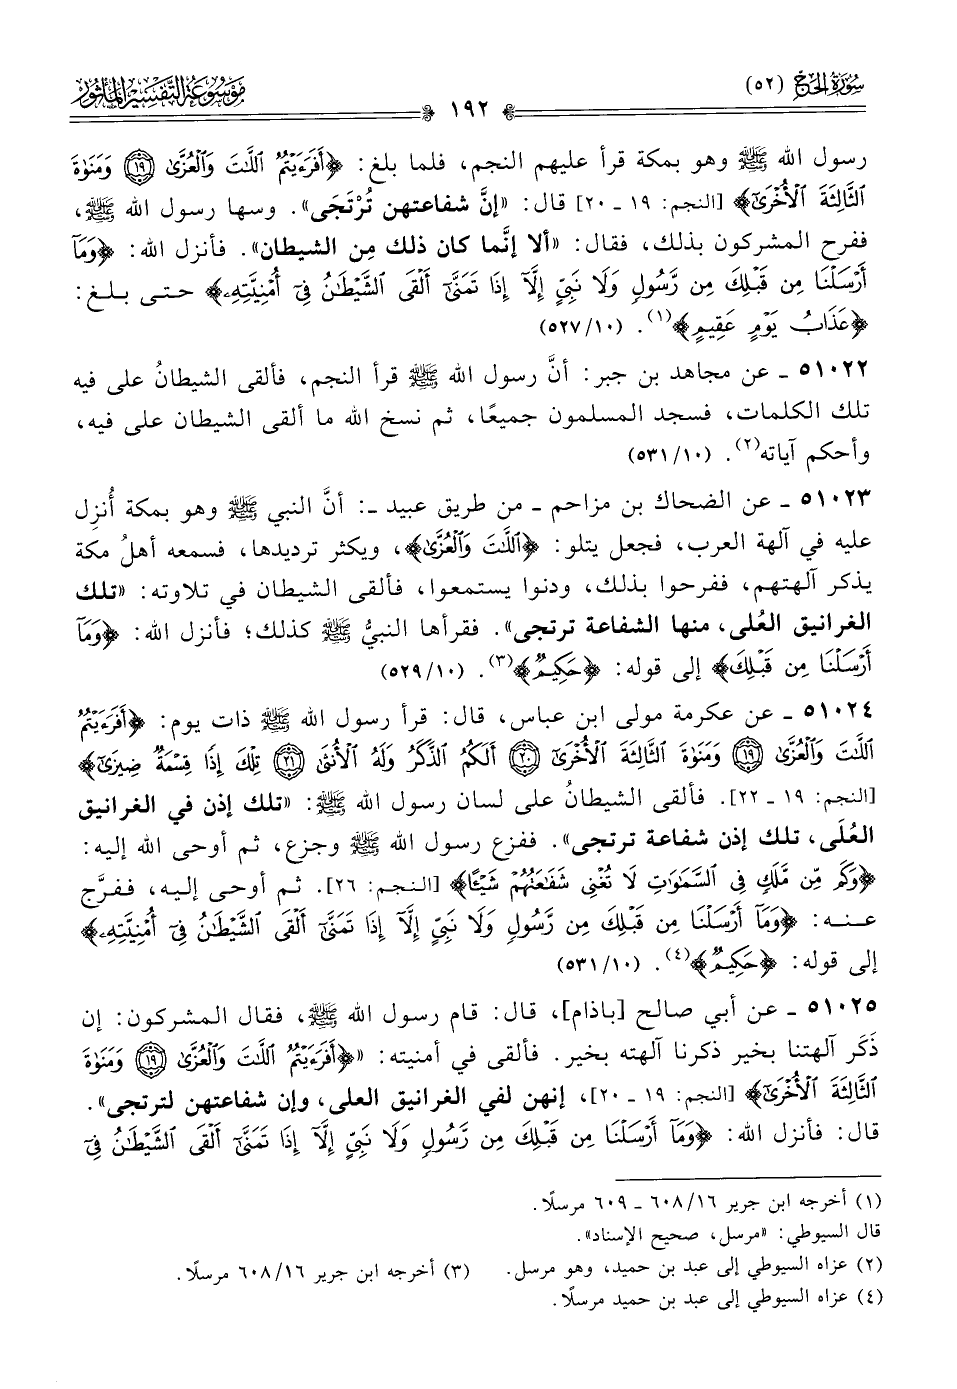 سُورَةُ الحَجّ (٥٢)
١٩٢
مَوْسُوعَةُ التَّفْسِيرِ المَأْثُورِ
رسول الله ﷺ وهو بمكة قرأ عليهم النجم، فلما بلغ: ﴿أَفَرَءَيْتُمُ ٱللَّٰتَ وَٱلْعُزَّىٰ ۝١٩ وَمَنَوٰةَ
ٱلثَّالِثَةَ ٱلْأُخْرَىٰٓ﴾ [النجم: ١٩ ـ ٢٠] قال: «إنَّ شفاعتهن تُرْتَجَى». وسها رسول الله ﷺ،
ففرح المشركون بذلك، فقال: «ألا إنَّما كان ذلك مِن الشيطان». فأنزل الله: ﴿وَمَآ
أَرْسَلْنَا مِن قَبْلِكَ مِن رَّسُولٍ وَلَا نَبِيٍّ إِلَّآ إِذَا تَمَنَّىٰٓ أَلْقَى ٱلشَّيْطَٰنُ فِىٓ أُمْنِيَّتِهِۦ﴾ حتى بلغ:
﴿عَذَابُ يَوْمٍ عَقِيمٍ﴾(١). (٥٢٧/١٠)
٥١٠٢٢ ـ عن مجاهد بن جبر: أنَّ رسول الله ﷺ قرأ النجم، فألقى الشيطانُ على فيه
تلك الكلمات، فسجد المسلمون جميعًا، ثم نسخ الله ما ألقى الشيطان على فيه،
وأحكم آياته(٢). (٥٣١/١٠)
٥١٠٢٣ ـ عن الضحاك بن مزاحم ـ من طريق عبيد ـ: أنَّ النبي ﷺ وهو بمكة أُنزِل
عليه في آلهة العرب، فجعل يتلو: ﴿ٱللَّٰتَ وَٱلْعُزَّىٰ﴾، ويكثر ترديدها، فسمعه أهلُ مكة
يذكر آلهتهم، ففرحوا بذلك، ودنوا يستمعوا، فألقى الشيطان في تلاوته: «تلك
الغرانيق العُلى، منها الشفاعة ترتجى». فقرأها النبيُّ ﷺ كذلك؛ فأنزل الله: ﴿وَمَآ
أَرْسَلْنَا مِن قَبْلِكَ﴾ إلى قوله: ﴿حَكِيمٌ﴾(٣). (٥٢٩/١٠)
٥١٠٢٤ ـ عن عكرمة مولى ابن عباس، قال: قرأ رسول الله ﷺ ذات يوم: ﴿أَفَرَءَيْتُمُ
ٱللَّٰتَ وَٱلْعُزَّىٰ ۝١٩ وَمَنَوٰةَ ٱلثَّالِثَةَ ٱلْأُخْرَىٰٓ ۝٢٠ أَلَكُمُ ٱلذَّكَرُ وَلَهُ ٱلْأُنثَىٰ ۝٢١ تِلْكَ إِذًا قِسْمَةٌ ضِيزَىٰٓ﴾
[النجم: ١٩ ـ ٢٢]. فألقى الشيطانُ على لسان رسول الله ﷺ: «تلك إذن في الغرانيق
العُلَى، تلك إذن شفاعة ترتجى». ففزع رسول الله ﷺ وجزع، ثم أوحى الله إليه:
﴿وَكَم مِّن مَّلَكٍ فِى ٱلسَّمَٰوَٰتِ لَا تُغْنِى شَفَٰعَتُهُمْ شَيْـًٔا﴾ [النجم: ٢٦]. ثم أوحى إليه، ففرَّج
عنه: ﴿وَمَآ أَرْسَلْنَا مِن قَبْلِكَ مِن رَّسُولٍ وَلَا نَبِيٍّ إِلَّآ إِذَا تَمَنَّىٰٓ أَلْقَى ٱلشَّيْطَٰنُ فِىٓ أُمْنِيَّتِهِۦ﴾
إلى قوله: ﴿حَكِيمٌ﴾(٤). (٥٣١/١٠)
٥١٠٢٥ ـ عن أبي صالح [باذام]، قال: قام رسول الله ﷺ، فقال المشركون: إن
ذَكَر آلهتنا بخير ذكرنا آلهته بخير. فألقى في أمنيته: «﴿أَفَرَءَيْتُمُ ٱللَّٰتَ وَٱلْعُزَّىٰ ۝١٩ وَمَنَوٰةَ
ٱلثَّالِثَةَ ٱلْأُخْرَىٰٓ﴾ [النجم: ١٩ ـ ٢٠]، إنهن لفي الغرانيق العلى، وإن شفاعتهن لترتجى».
قال: فأنزل الله: ﴿وَمَآ أَرْسَلْنَا مِن قَبْلِكَ مِن رَّسُولٍ وَلَا نَبِيٍّ إِلَّآ إِذَا تَمَنَّىٰٓ أَلْقَى ٱلشَّيْطَٰنُ فِىٓ
(١) أخرجه ابن جرير ١٦/ ٦٠٨ ـ ٦٠٩ مرسلًا.
قال السيوطي: «مرسل، صحيح الإسناد».
(٢) عزاه السيوطي إلى عبد بن حميد، وهو مرسل. (٣) أخرجه ابن جرير ١٦/ ٦٠٨ مرسلًا.
(٤) عزاه السيوطي إلى عبد بن حميد مرسلًا.